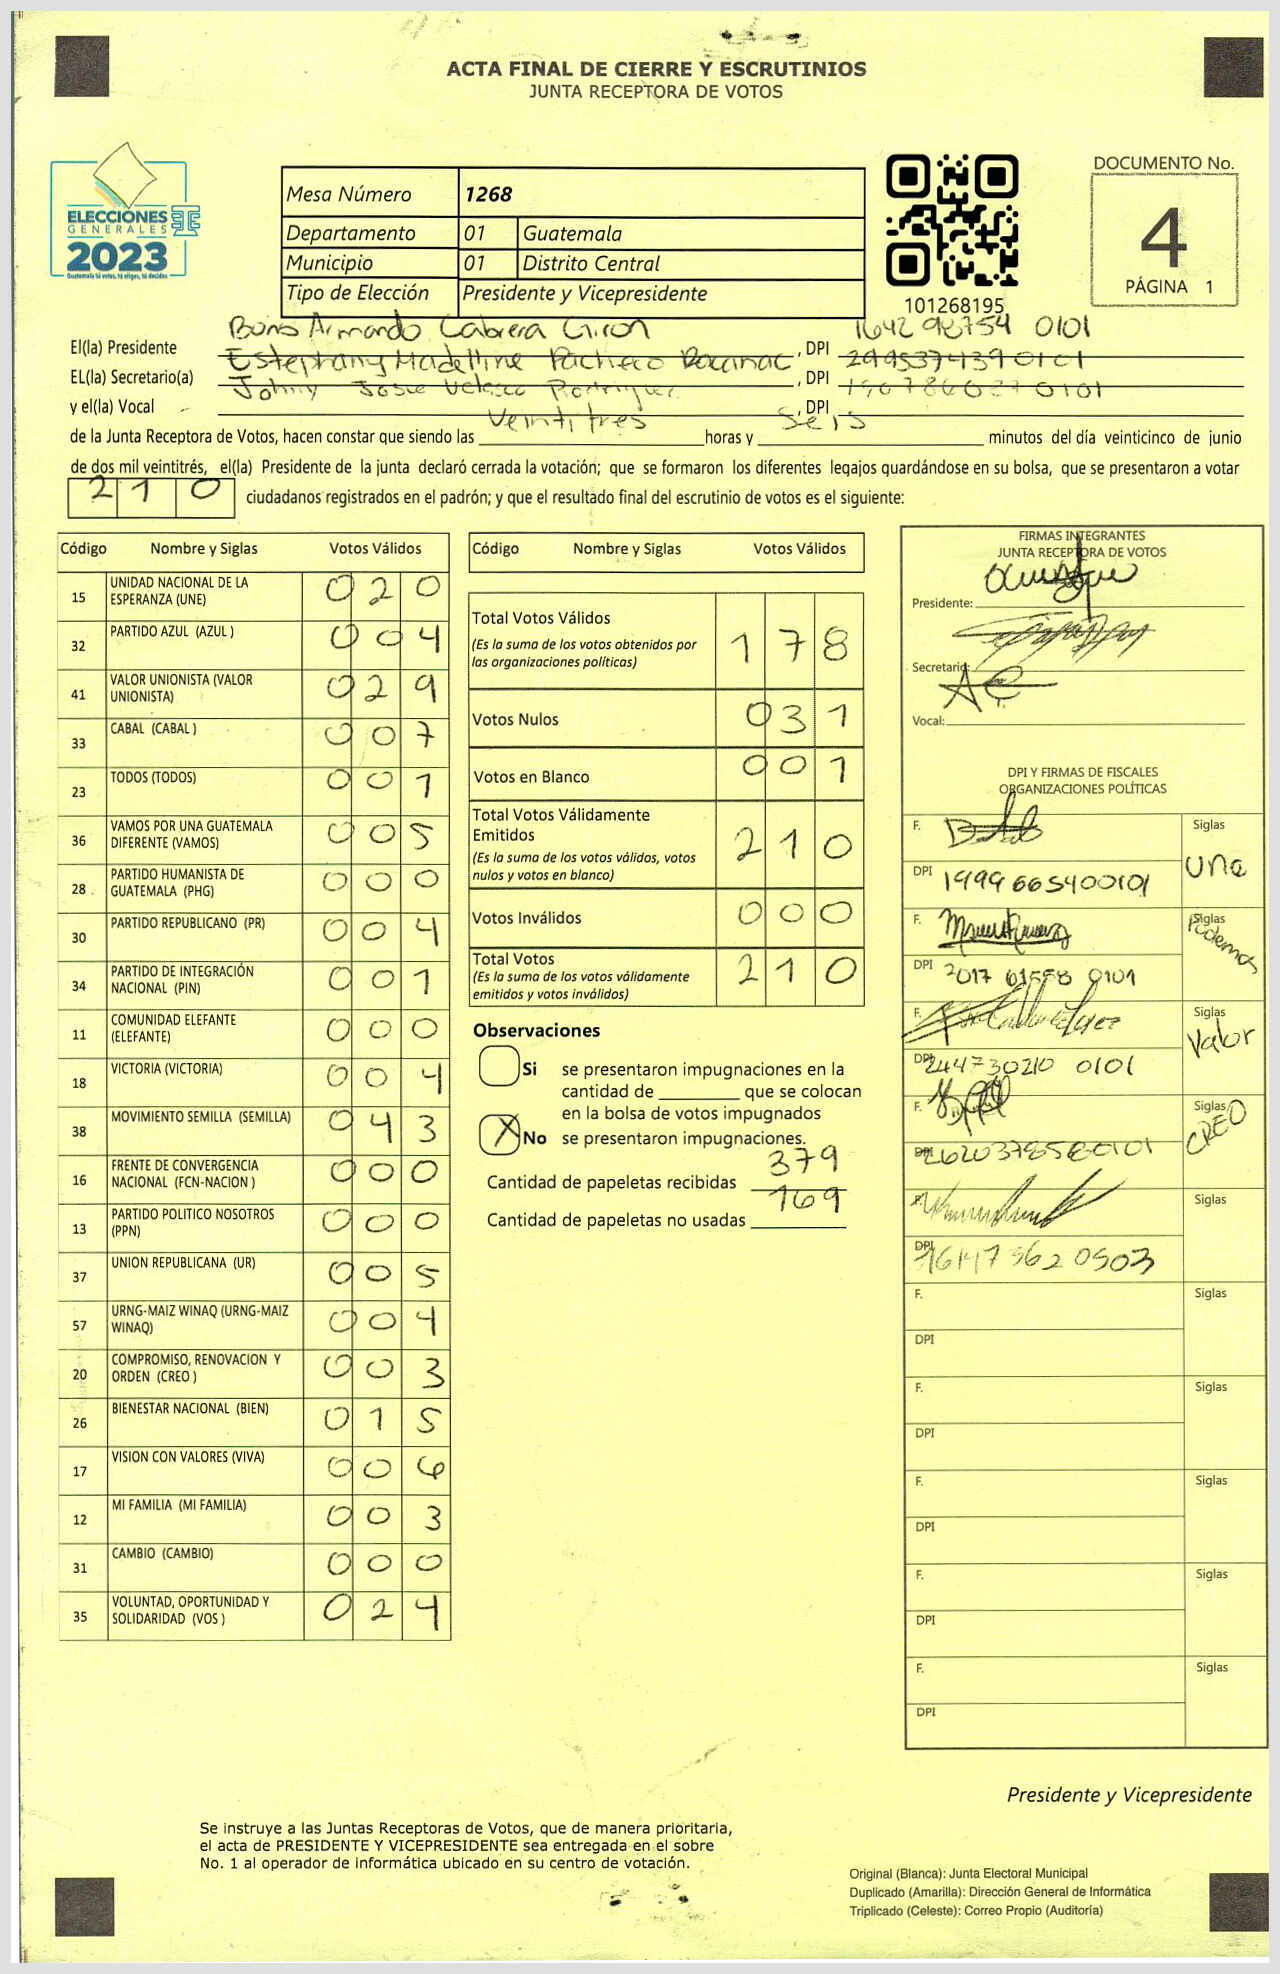 ACTA FINAL DE CIERRE Y ESCRUTINIOS
JUNTA RECEPTORA DE VOTOS
ELECCIONES
GENERALES
2023
Guatemala tú votas, tú eliges, tú decides
Mesa Número 1268
Departamento 01 Guatemala
Municipio 01 Distrito Central
Tipo de Elección Presidente y Vicepresidente
101268195
DOCUMENTO No.
4
PÁGINA 1
El(la) Presidente Boris Armando Cabrera Giron, DPI 1642 98754 0101
EL(la) Secretario(a) Estephany Madelline Pacheco, DPI 299537439 0101
y el(la) Vocal Johny Josue Velasco Rodriguez, DPI 0101
de la Junta Receptora de Votos, hacen constar que siendo las Veintitres horas y Seis minutos del día veinticinco de junio
de dos mil veintitrés, el(la) Presidente de la junta declaró cerrada la votación; que se formaron los diferentes legajos guardándose en su bolsa, que se presentaron a votar
210 ciudadanos registrados en el padrón; y que el resultado final del escrutinio de votos es el siguiente:
Código Nombre y Siglas Votos Válidos
15 UNIDAD NACIONAL DE LA ESPERANZA (UNE) 020
32 PARTIDO AZUL (AZUL ) 004
41 VALOR UNIONISTA (VALOR UNIONISTA) 029
33 CABAL (CABAL ) 007
23 TODOS (TODOS) 001
36 VAMOS POR UNA GUATEMALA DIFERENTE (VAMOS) 005
28 PARTIDO HUMANISTA DE GUATEMALA (PHG) 000
30 PARTIDO REPUBLICANO (PR) 004
34 PARTIDO DE INTEGRACIÓN NACIONAL (PIN) 001
11 COMUNIDAD ELEFANTE (ELEFANTE) 000
18 VICTORIA (VICTORIA) 004
38 MOVIMIENTO SEMILLA (SEMILLA) 043
16 FRENTE DE CONVERGENCIA NACIONAL (FCN-NACION ) 000
13 PARTIDO POLITICO NOSOTROS (PPN) 000
37 UNION REPUBLICANA (UR) 005
57 URNG-MAIZ WINAQ (URNG-MAIZ WINAQ) 004
20 COMPROMISO, RENOVACION Y ORDEN (CREO ) 003
26 BIENESTAR NACIONAL (BIEN) 015
17 VISION CON VALORES (VIVA) 006
12 MI FAMILIA (MI FAMILIA) 003
31 CAMBIO (CAMBIO) 000
35 VOLUNTAD, OPORTUNIDAD Y SOLIDARIDAD (VOS ) 024
Código Nombre y Siglas Votos Válidos
Total Votos Válidos 178
(Es la suma de los votos obtenidos por
las organizaciones políticas)
Votos Nulos 031
Votos en Blanco 001
Total Votos Válidamente
Emitidos 210
(Es la suma de los votos válidos, votos
nulos y votos en blanco)
Votos Inválidos 000
Total Votos 210
(Es la suma de los votos válidamente
emitidos y votos inválidos)
Observaciones
Si se presentaron impugnaciones en la
cantidad de ________ que se colocan
en la bolsa de votos impugnados
X No se presentaron impugnaciones.
Cantidad de papeletas recibidas 379
Cantidad de papeletas no usadas 169
FIRMAS INTEGRANTES
JUNTA RECEPTORA DE VOTOS
Presidente:
Secretario:
Vocal:
DPI Y FIRMAS DE FISCALES
ORGANIZACIONES POLÍTICAS
F. Siglas
DPI 1999 66540 0101 Une
F. Siglas
DPI 2017 61558 0101 Podemos
F. Siglas
DPI 244730210 0101 Valor
F. Siglas
DPI 262037858 0101 CREO
F. Siglas
DPI
F. Siglas
DPI
F. Siglas
DPI
F. Siglas
DPI
F. Siglas
DPI
F. Siglas
DPI
Presidente y Vicepresidente
Se instruye a las Juntas Receptoras de Votos, que de manera prioritaria,
el acta de PRESIDENTE Y VICEPRESIDENTE sea entregada en el sobre
No. 1 al operador de informática ubicado en su centro de votación.
Original (Blanca): Junta Electoral Municipal
Duplicado (Amarilla): Dirección General de Informática
Triplicado (Celeste): Correo Propio (Auditoría)